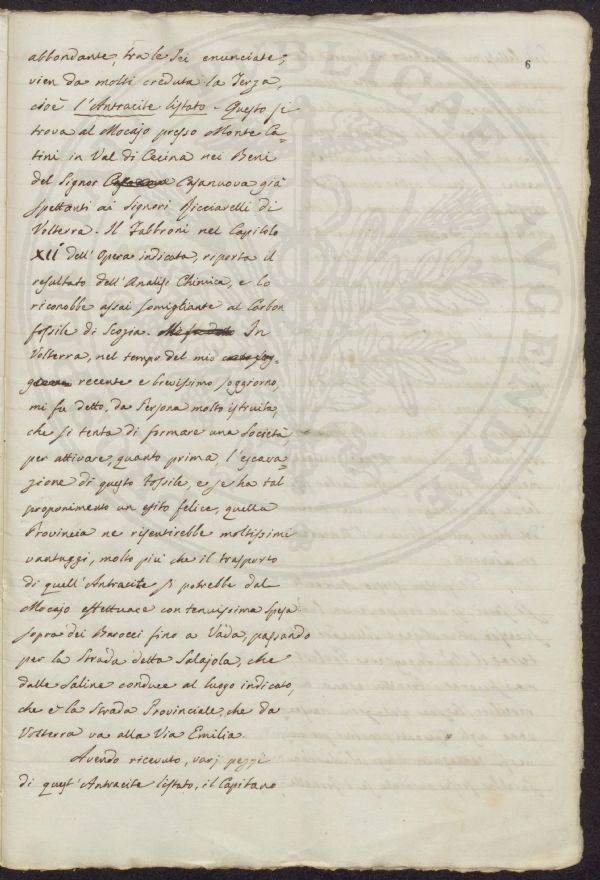 6
abbondante, tra le sei enunciate,
vien da molti creduta la Terza,
cioè l'Antracite listato - Questo si
trova al Mocajo presso Monte Ca=
tini in Val di Cecina nei Beni
del Signor Casanuova già
spettanti ai Signori Ricciarelli di
Volterra. Il Fabbroni nel Capitolo
XII dell'Opera indicata, riporta il
resultato dell'Analisi Chimica, e lo
riconobbe assai somigliante al Carbon
fossile di Scozia. In
Volterra, nel tempo del mio
recente e brevissimo soggiorno,
mi fu detto, da Persona molto istruita,
che si tenta di formare una Società,
per attivare, quanto prima, l'escava=
zione di questo fossile, e se ha tal
proponimento un esito felice, quella
Provincia ne risentirebbe moltissimi
vantaggi, molto più che il trasporto
di quell'Antracite si potrebbe dal
Mocajo effettuare con tenuissima spesa
sopra dei Barocci fino a Vada, passando
per la Strada detta Salajola, che
dalle Saline conduce al luogo indicato,
che è la Strada Provinciale, che da
Volterra va alla Via Emilia.
Avendo ricevuto, varj pezzi
di quest'Antracite listato, il Capitano